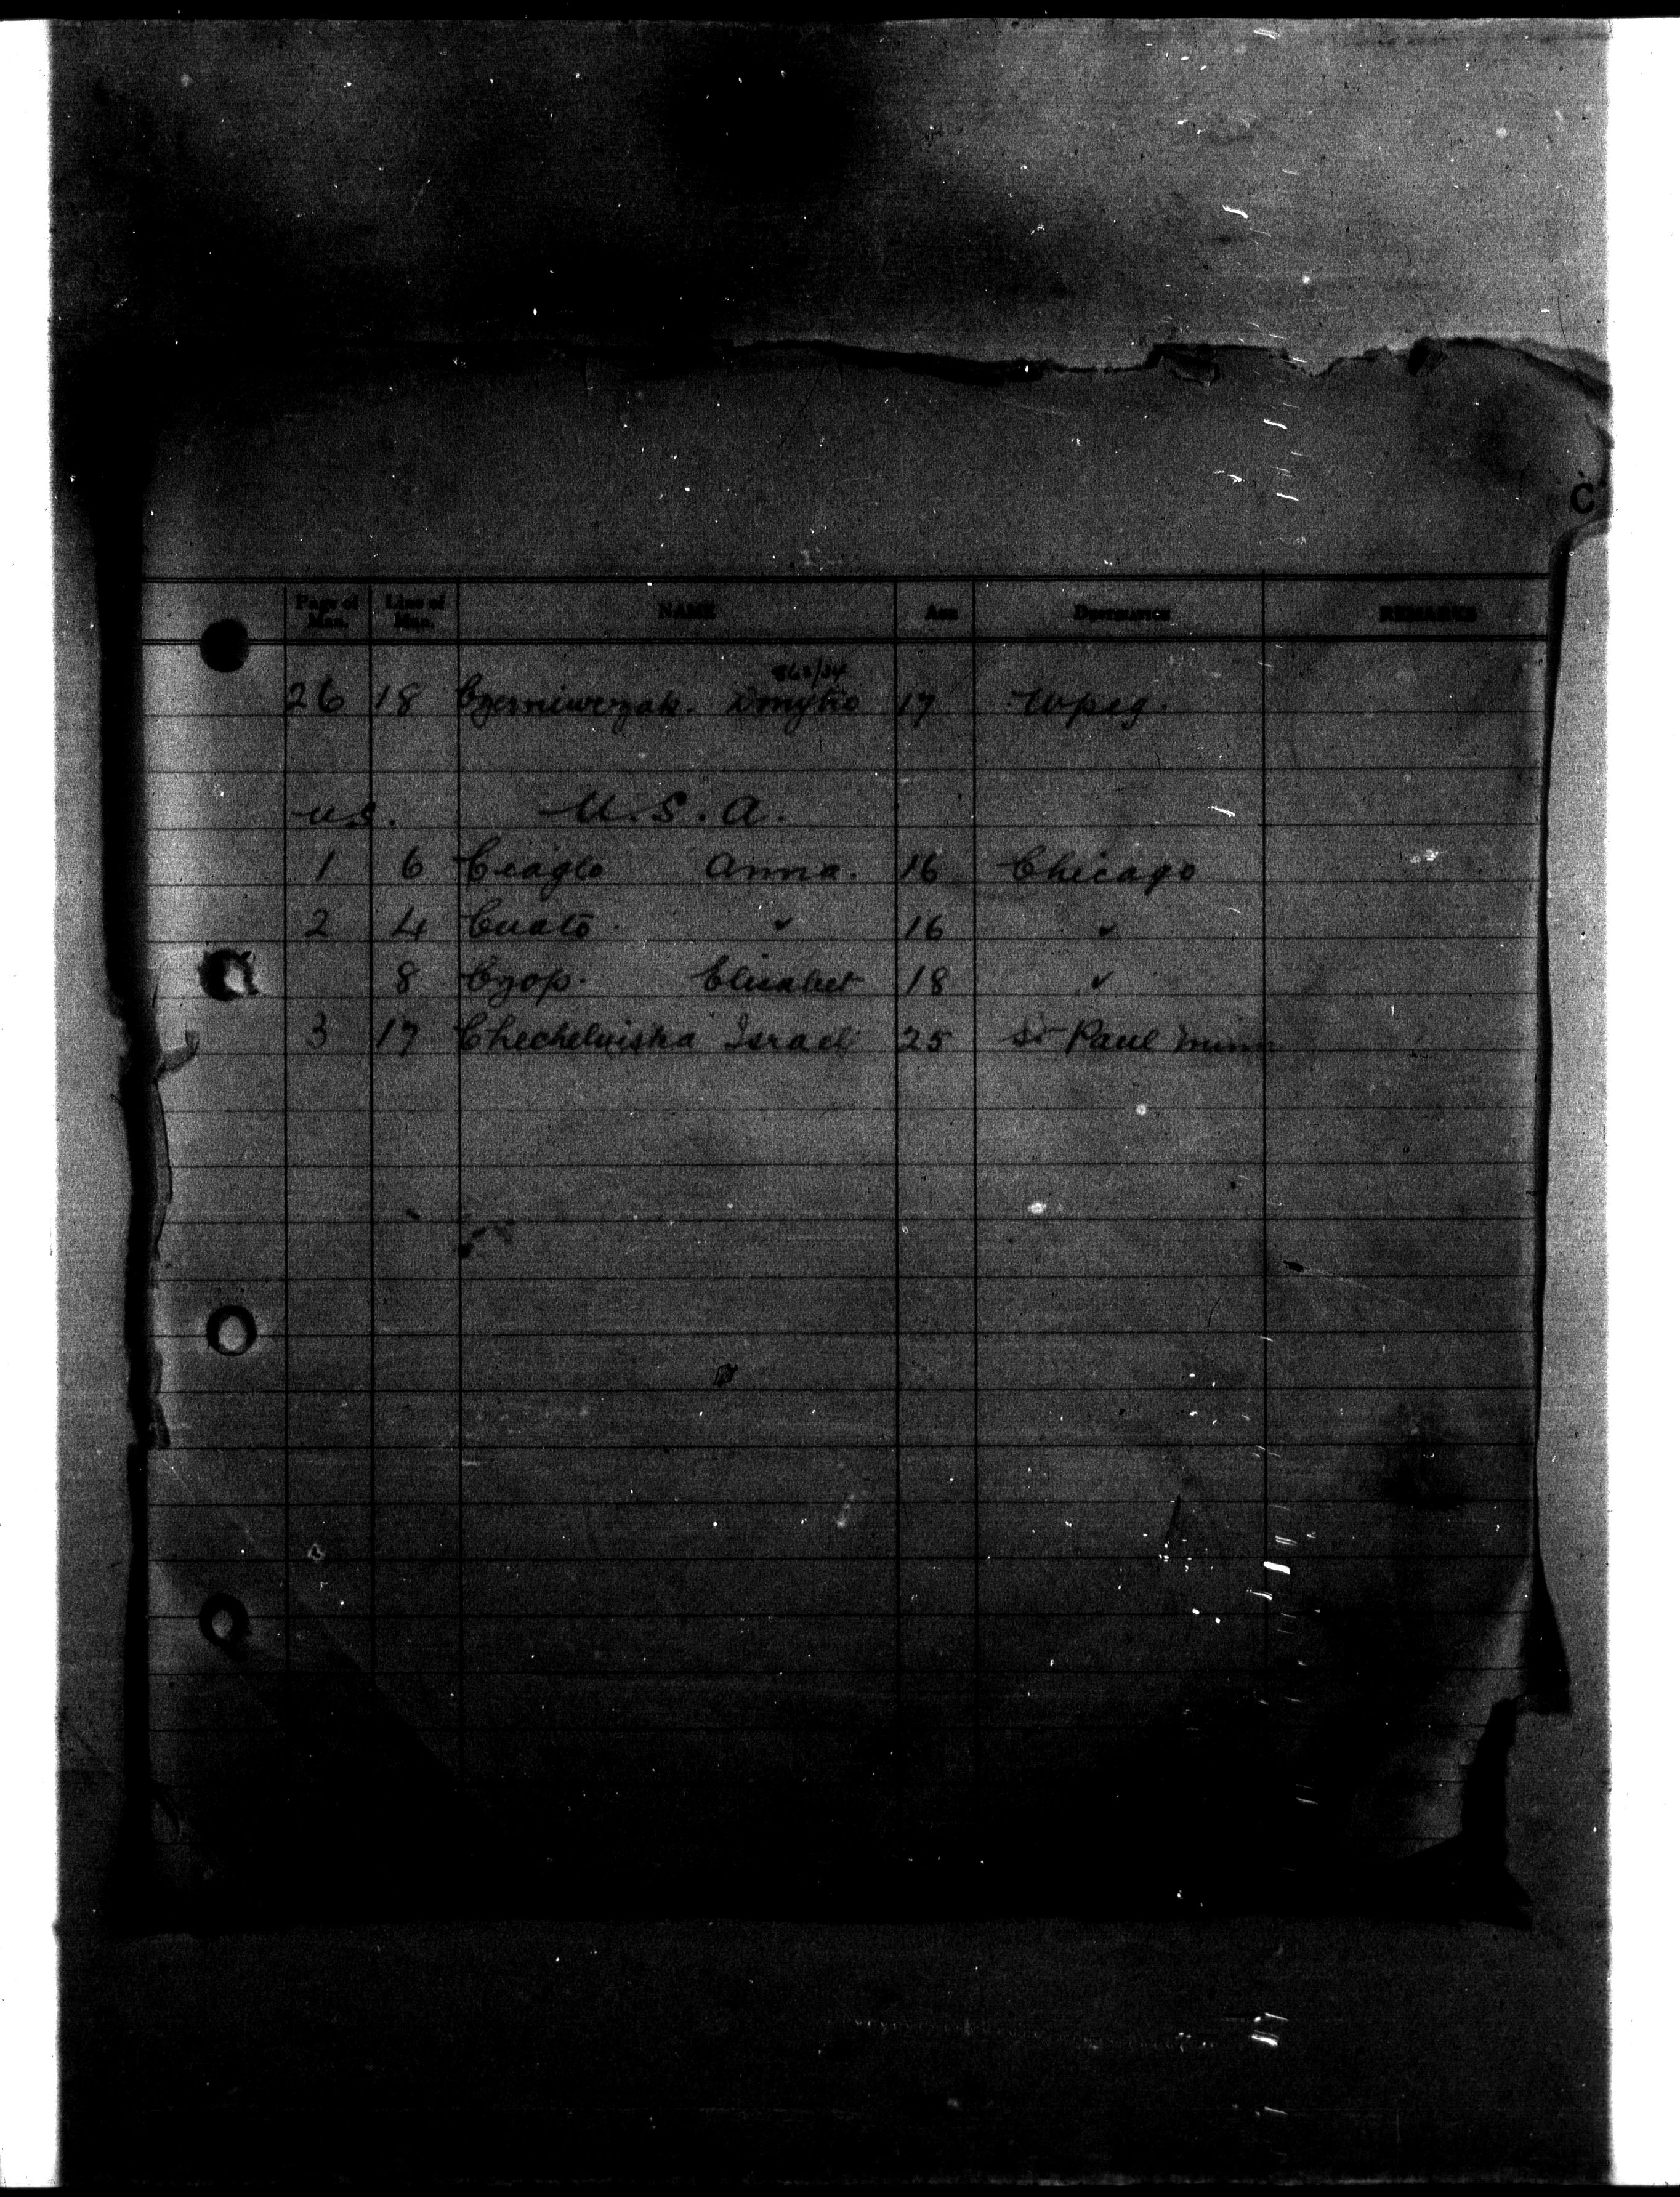 C
Page of Man. Line of Man. NAME AGE DESTINATION REMARKS
863/34
26 18 Czerniwczak. Dmytro 17 Wpeg.
U.S. U.S.A.
1 6 Anna. 16 Chicago
2 4 " 16 "
8 Czop. Elisabet 18 "
3 17 Israel 25 St Paul Minn